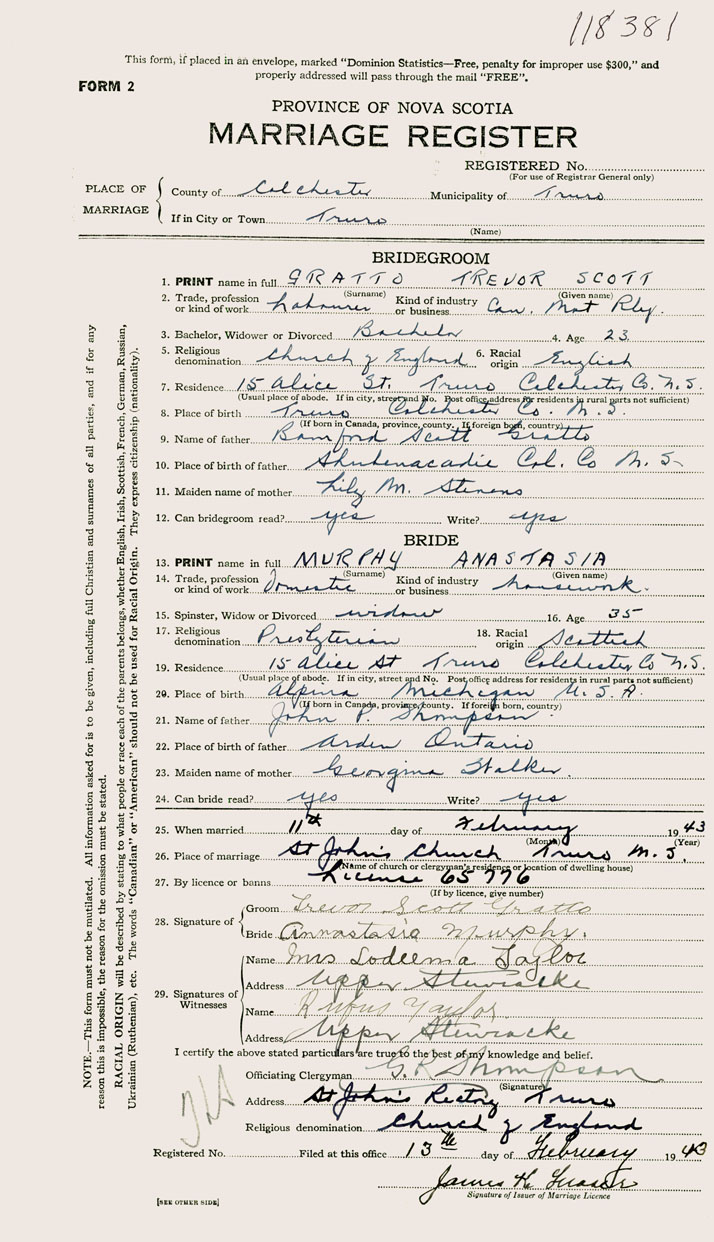 118381
This form, if placed in an envelope, marked "Dominion Statistics—Free, penalty for improper use $300," and
properly addressed will pass through the mail "FREE".
FORM 2
PROVINCE OF NOVA SCOTIA
MARRIAGE REGISTER
REGISTERED No.
(For use of Registrar General only)
PLACE OF MARRIAGE
County of Colchester Municipality of Truro
If in City or Town Truro
(Name)
BRIDEGROOM
1. PRINT name in full GRATTO TREVOR SCOTT
(Surname) (Given name)
2. Trade, profession or kind of work Labourer Kind of industry or business Can. Nat Rly.
3. Bachelor, Widower or Divorced Bachelor 4. Age 23
5. Religious denomination Church of England 6. Racial origin English
7. Residence 15 Alice St. Truro Colchester Co. N.S.
(Usual place of abode. If in city, street and No. Post office address for residents in rural parts not sufficient)
8. Place of birth Truro Colchester Co. N.S.
(If born in Canada, province, county. If foreign born, country)
9. Name of father Bamford Scott Gratto
10. Place of birth of father Shubenacadie Col. Co N.S.
11. Maiden name of mother Lily M. Stevens
12. Can bridegroom read? yes Write? yes
BRIDE
13. PRINT name in full MURPHY ANASTASIA
(Surname) (Given name)
14. Trade, profession or kind of work Domestic Kind of industry or business housework.
15. Spinster, Widow or Divorced widow 16. Age 35
17. Religious denomination Presbyterian 18. Racial origin Scottish
19. Residence 15 Alice St Truro Colchester Co N.S.
(Usual place of abode. If in city, street and No. Post office address for residents in rural parts not sufficient)
20. Place of birth Alpina Michigan U.S.A.
(If born in Canada, province, county. If foreign born, country)
21. Name of father John P. Thompson.
22. Place of birth of father Arden Ontario
23. Maiden name of mother Georgina Walker.
24. Can bride read? yes Write? yes
25. When married 11th day of February 1943
(Month) (Year)
26. Place of marriage St John's Church Truro N.S.
(Name of church or clergyman's residence or location of dwelling house)
27. By licence or banns License 65776
(If by licence, give number)
28. Signature of
Groom Trevor Scott Gratto
Bride Annastasia Murphy.
29. Signatures of Witnesses
Name Mrs Lodeema Taylor
Address Upper Stewiacke
Name Rufus Taylor.
Address Upper Stewiacke
I certify the above stated particulars are true to the best of my knowledge and belief.
Officiating Clergyman G.R. Thompson
(Signature)
Address St John's Rectory Truro
Religious denomination Church of England
Registered No. Filed at this office 13th day of February 1943
James H.
Signature of Issuer of Marriage Licence
[SEE OTHER SIDE]
NOTE.—This form must not be mutilated. All information asked for is to be given, including full Christian and surnames of all parties, and if for any
reason this is impossible, the reason for the omission must be stated.
RACIAL ORIGIN will be described by stating to what people or race each of the parents belongs, whether English, Irish, Scottish, French, German, Russian,
Ukrainian (Ruthenian), etc. The words "Canadian" or "American" should not be used for Racial Origin. They express citizenship (nationality).